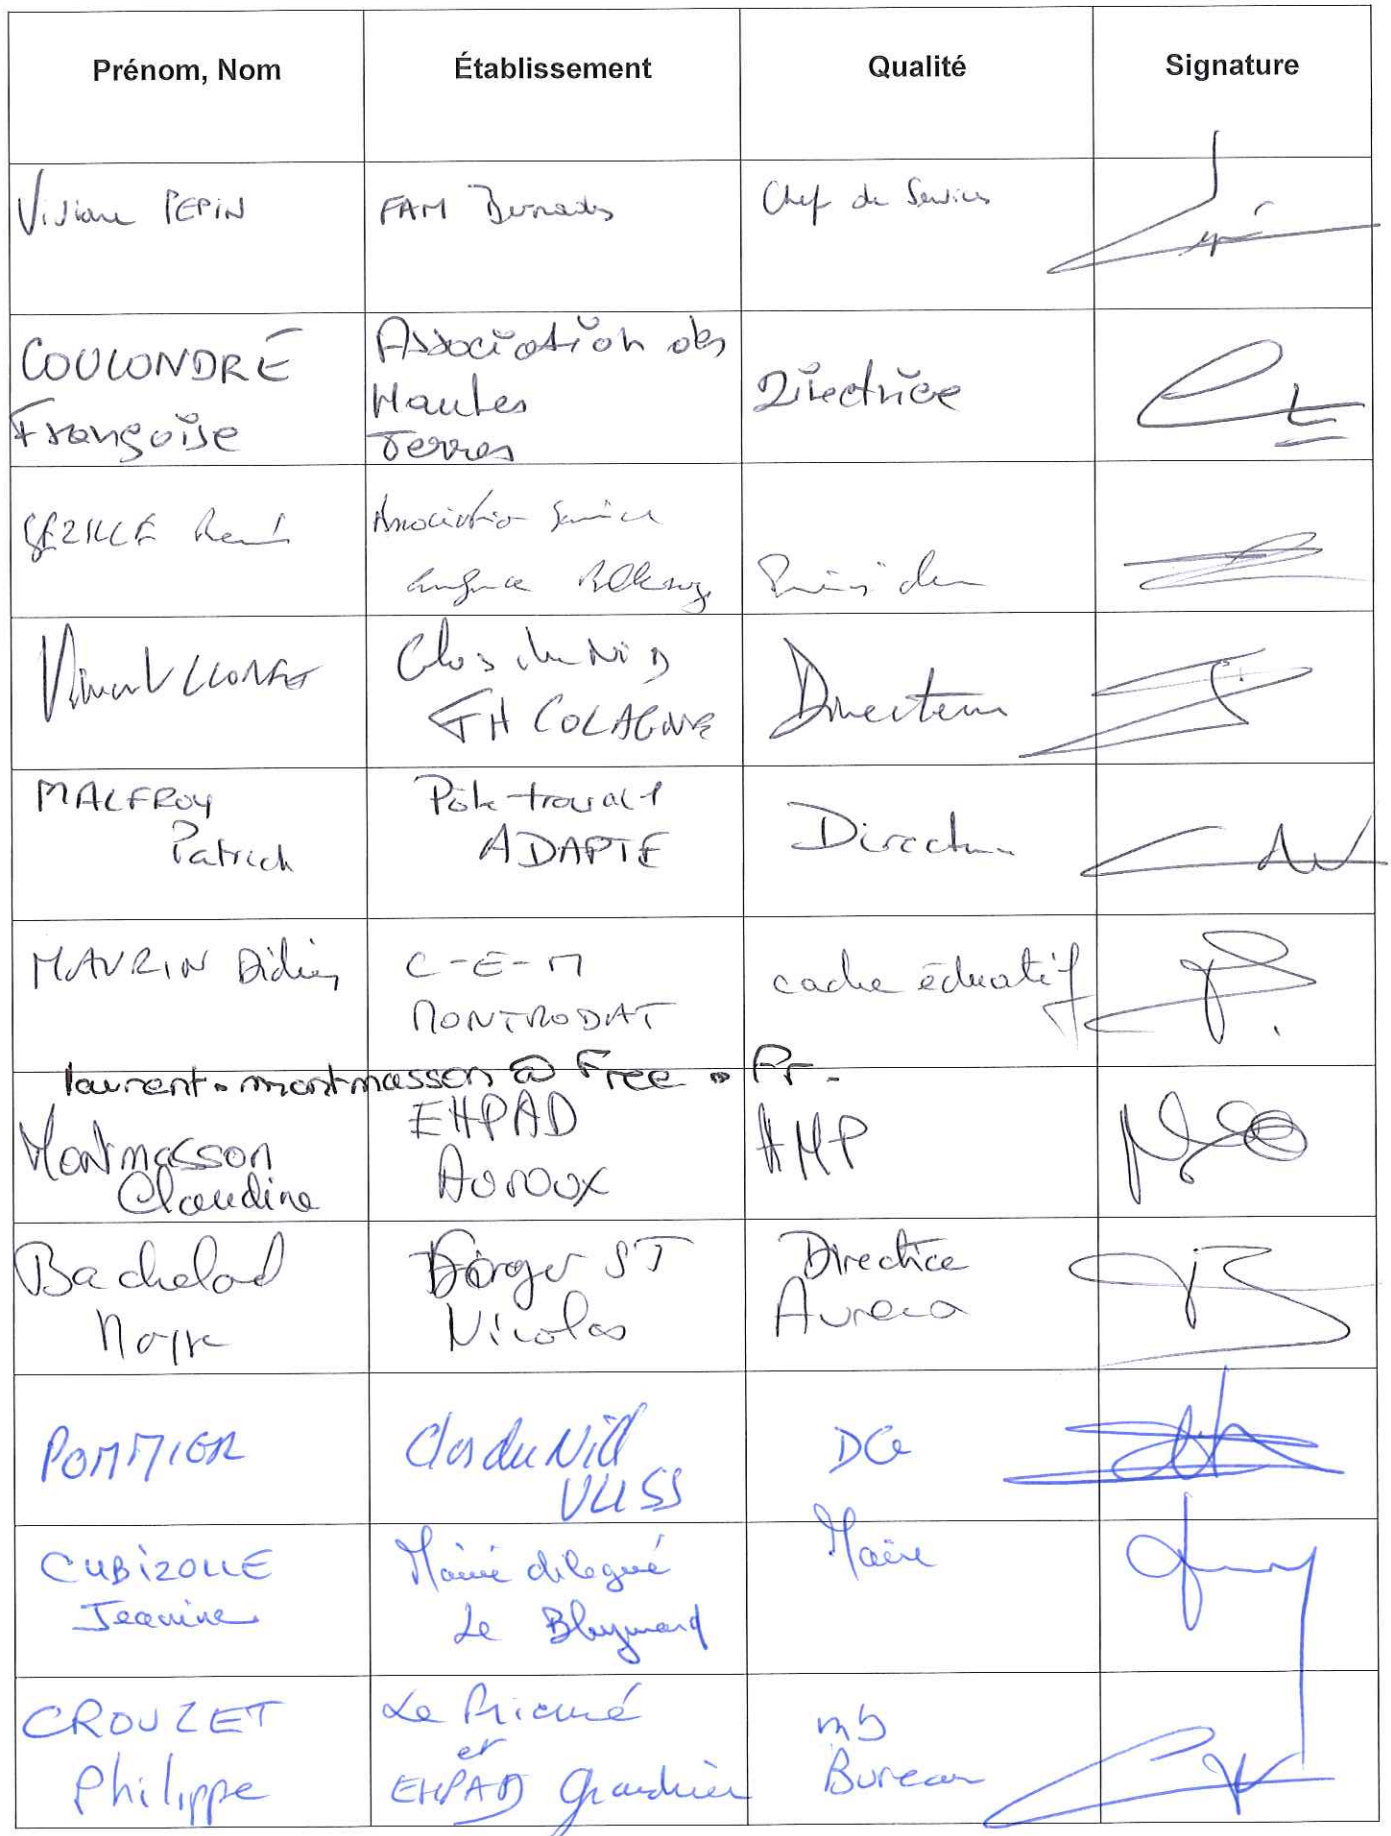 Prénom, Nom Établissement Qualité Signature
Viviane PEPIN FAM Bernades Chef de Services
COULONDRE Françoise Association des Hautes Terres Directrice
René Association
Clos du Nid FH COLAGNE Directeur
MALFROY Patrick Pôle travail ADAPTE Directeur
MAURIN Didier C-E-M MONTRODAT cadre éducatif
laurent.montmasson@free.fr.
Montmasson Claudine EHPAD Auroux AMP
Bachelard ST Nicolas Directrice
POMMIER Clos du Nid DG
CUBIZOLLE Jeanine Mairie délégué Le Bleymard Maire
CROUZET Philippe Le Prieuré et EHPAD mb Bureau